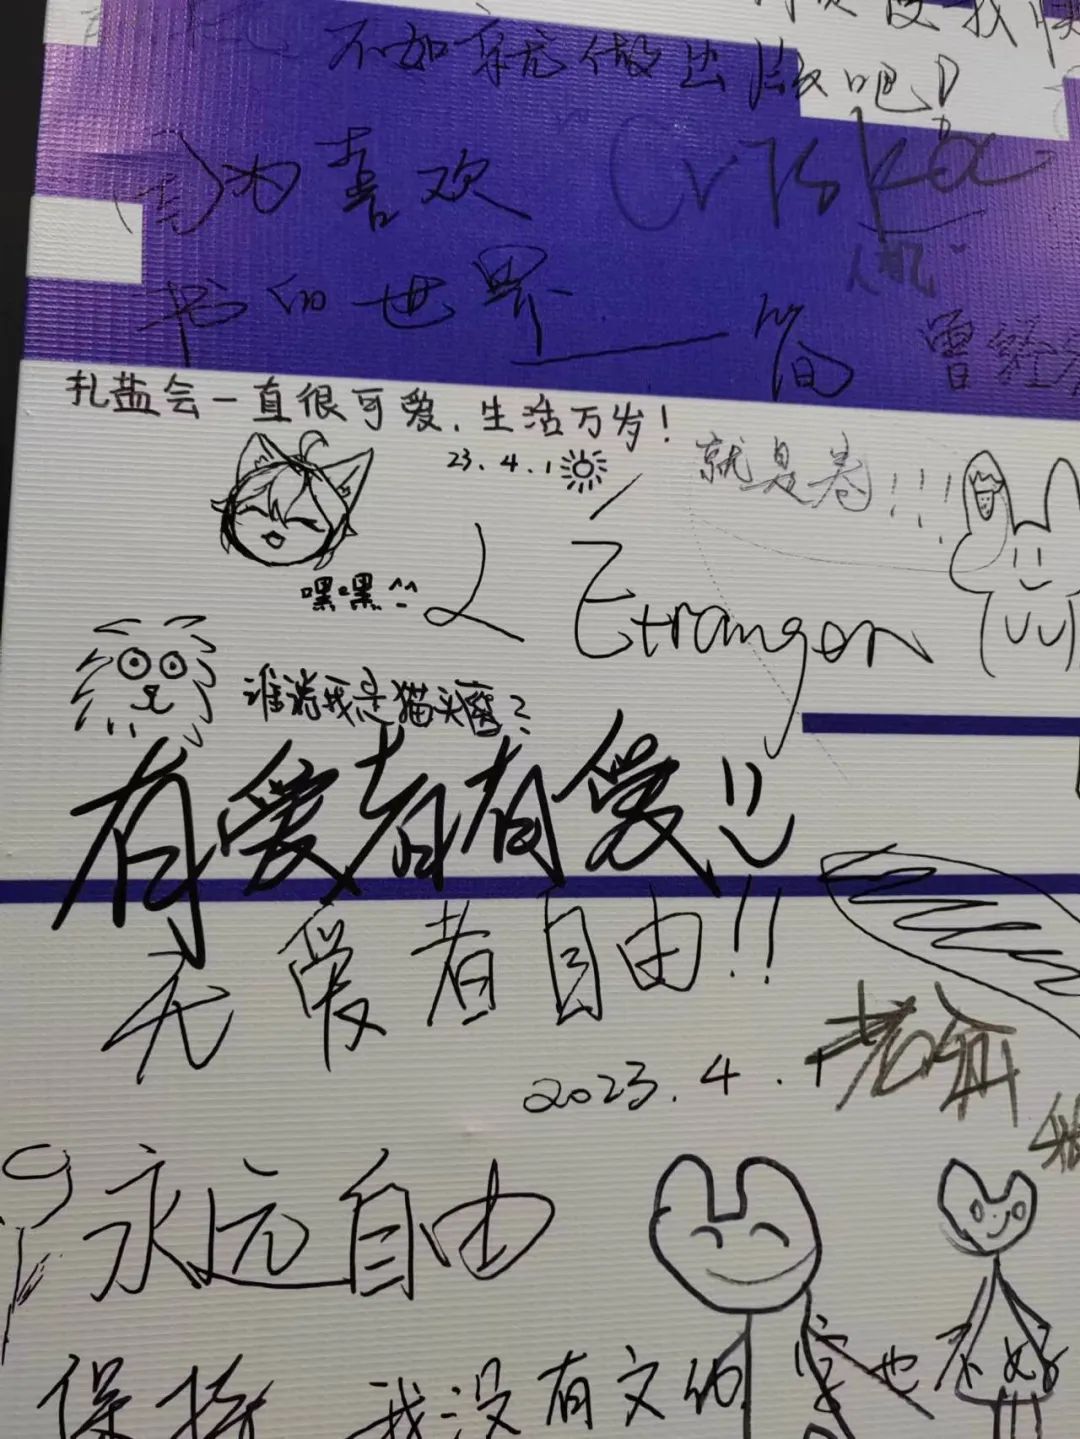 不如就做出版吧!
为喜欢
书的世界——简
人机
曾经
扎盐会一直很可爱.生活万岁!
23.4.1
就是卷!!!
嘿嘿^^
L'Étranger
谁说我是猫头鹰?
有爱者有爱
无爱者自由!!
2023.4.1
永远自由
保持
我没有文的 字也不好